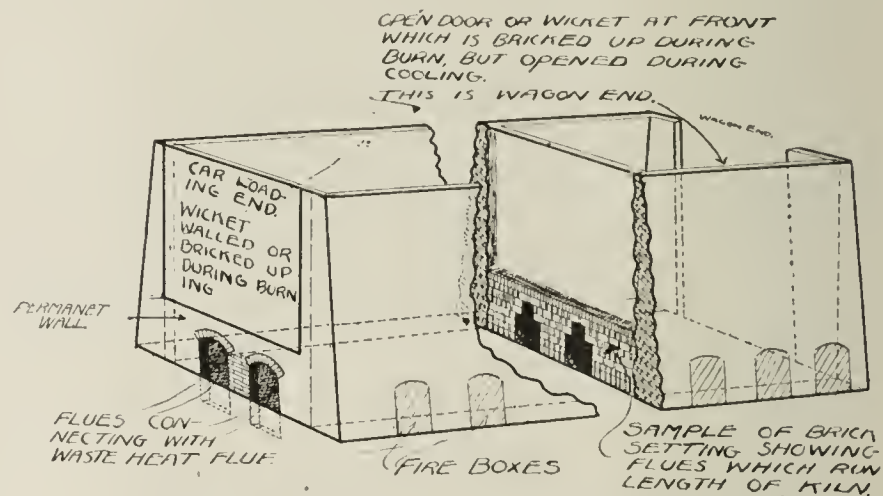 OPEN DOOR OR WICKET AT FRONT
WHICH IS BRICKED UP DURING
BURN, BUT OPENED DURING
COOLING.
THIS IS WAGON END.
WAGON END.
CAR LOAD-
ING END.
WICKET
WALLED OR
BRICKED UP
DURING BURN
ING
PERMANET
WALL
FLUES CON-
NECTING WITH
WASTE HEAT FLUE
FIRE BOXES
SAMPLE OF BRICK
SETTING SHOWING
FLUES WHICH RUN
LENGTH OF KILN.